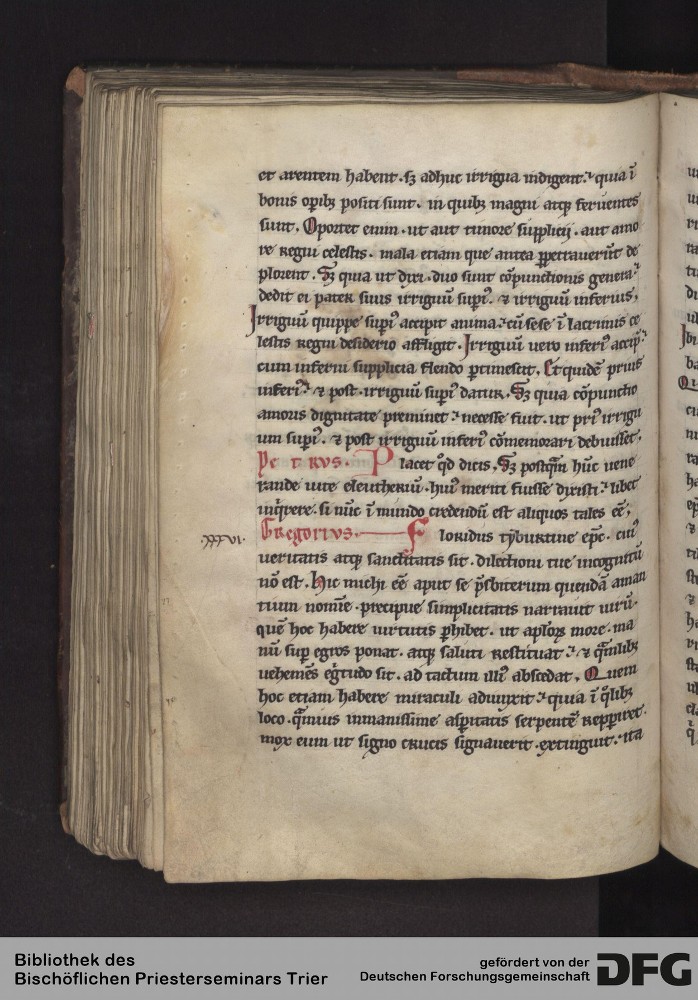 et arentem habent· sꝫ adhuc irrigua indigent.ᷓ quia ī
bonis oꝑibꝫ positi sunt· in quibꝫ magni atqꝫ feruentes
sunt, Oportet enim· ut aut timore supplicij· aut amo
re regni celestis· mala etiam que antea ꝑpetrauerūt de
plorent. Sꝫ quia ut dixi· duo sunt cōpunctionis genera·
dedit ei pater suus irriguū supiꝰ· ⁊ irriguū inferius,
Irriguū quippe supiꝰ accipit anima· cū sese ī lacrimis ce
lestis regni desiderio affligit· Irriguū uero inferiꝰ accip̄·
cum inferni supplicia flendo ꝑtimescit, Et quidē prius
inferiꝰ· ⁊ post· irriguū supiꝰ datur, Sꝫ quia cōpunctio
amoris dignitate preminet· necesse fuit· ut priꝰ irrigu
um supiꝰ· ⁊ post irriguū inferiꝰ cōmemorari debuisset,
Petrvs· Placet qd̄ dicis, Sꝫ postqm̄ hūc uene
rande uite eleutheriū· huiꝰ meriti fuisse dixisti· libet
inq̄rere· si nūc ī mundo credendū est aliquos tales eē;
xxxvi· Gregorivs· Floridus tyburtine ep̄c· cuiꝰ
ueritatis atqꝫ sanctitatis sit· dilectioni tue incognitū
nō est· hic michi eē aput se p̄sbiterum quendā aman
tium nomīe· precipue simplicitatis narrauit uirū·
quē hoc habere uirtutis ꝑhibet· ut apl̄oꝝ more· ma
nū suꝑ egros ponat· atqꝫ saluti restituat· ⁊ qm̄libꝫ
uehemēs eḡtudo sit· ad tactum illiꝰ abscedat, Quem
hoc etiam habere miraculi adiunxit· quia ī qͦlibꝫ
loco· qͣmuis inmanissime asꝑitatis serpentē repꝑiret·
mox eum ut signo crucis signauerit· extinguit· ita
Bibliothek des
Bischöflichen Priesterseminars Trier
gefördert von der
Deutschen Forschungsgemeinschaft DFG